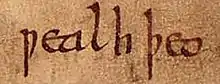 ƿealh þeo